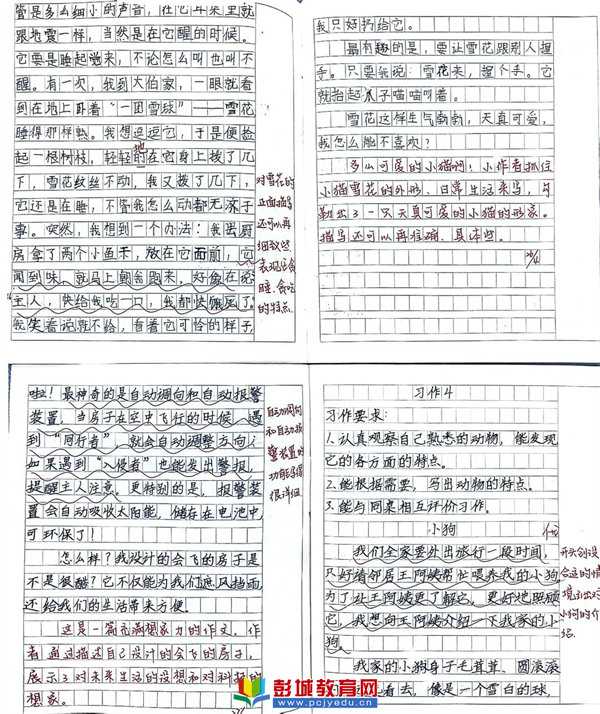 管是多么细小的声音，在它耳朵里就
跟地震一样，当然是在它醒的时候。
它要是睡起觉来，不论怎么叫也叫不
醒。有一次，我到大伯家，一眼就看
到在地上卧着“一团雪球”——雪花
睡得那样熟。我想逗逗它，于是便捡
起一根树枝，轻轻地在它身上拨了几
下，雪花纹丝不动，我又拨了几下，
它还是在睡，不管我怎么动都无济于
事。突然，我想到一个办法：我去厨
房拿了两个小鱼干，放在它面前，它
闻到味，就马上朝我跑来，好像在说
主人，快给我吃一口，我都快饿死了。
我笑着说就不给，看着它可怜的样子
对雪花的
正面描写
还可以再
细致些，
表现出贪
睡、贪吃
的特点
我只好扔给它。
最有趣的是，要让雪花跟别人握
手。只要我说：雪花来，握个手。它
就抬起爪子喵喵叫着。
雪花这样生气勃勃，天真可爱，
我怎么能不喜欢？
多么可爱的小猫啊！小作者抓住
小猫雪花的外形、日常生活来写，勾
勒出了一只天真可爱的小猫的形象。
描写还可以再准确、具体些。
啦！最神奇的是自动调向和自动报警
装置，当房子在空中飞行的时候，遇
到“同行者”，就会自动调整方向；
如果遇到“入侵者”也能发出警报，
提醒主人注意。更特别的是，报警装
置会自动吸收太阳能，储存在电池中
可环保了！
怎么样？我设计的会飞的房子是
不是很酷？它不仅能为我们遮风挡雨，
还给我们的生活带来方便。
这是一篇充满想象力的作文，作
者通过描述自己设计的会飞的房子，
展示了对未来生活的设想和对科技的
想象。
自动调向
和自动报
警装置的
功能写得
很详细
习作4
习作要求：
1.认真观察自己熟悉的动物，能发现
它的各方面的特点。
2.能根据需要，写出动物的特点。
3.能与同桌相互评价习作。
小狗
我们全家要外出旅行一段时间，
只好请邻居王阿姨帮忙喂养我的小狗
为了让王阿姨更了解它，更好地照顾
它，我想向王阿姨介绍一下我家的小
狗。
我家的小狗身子毛茸茸、圆滚滚
看去，像是一个雪白的球，
开头创设
合适的情
境引出对
小狗的介
绍
彭城教育网
www.pcjyedu.cn